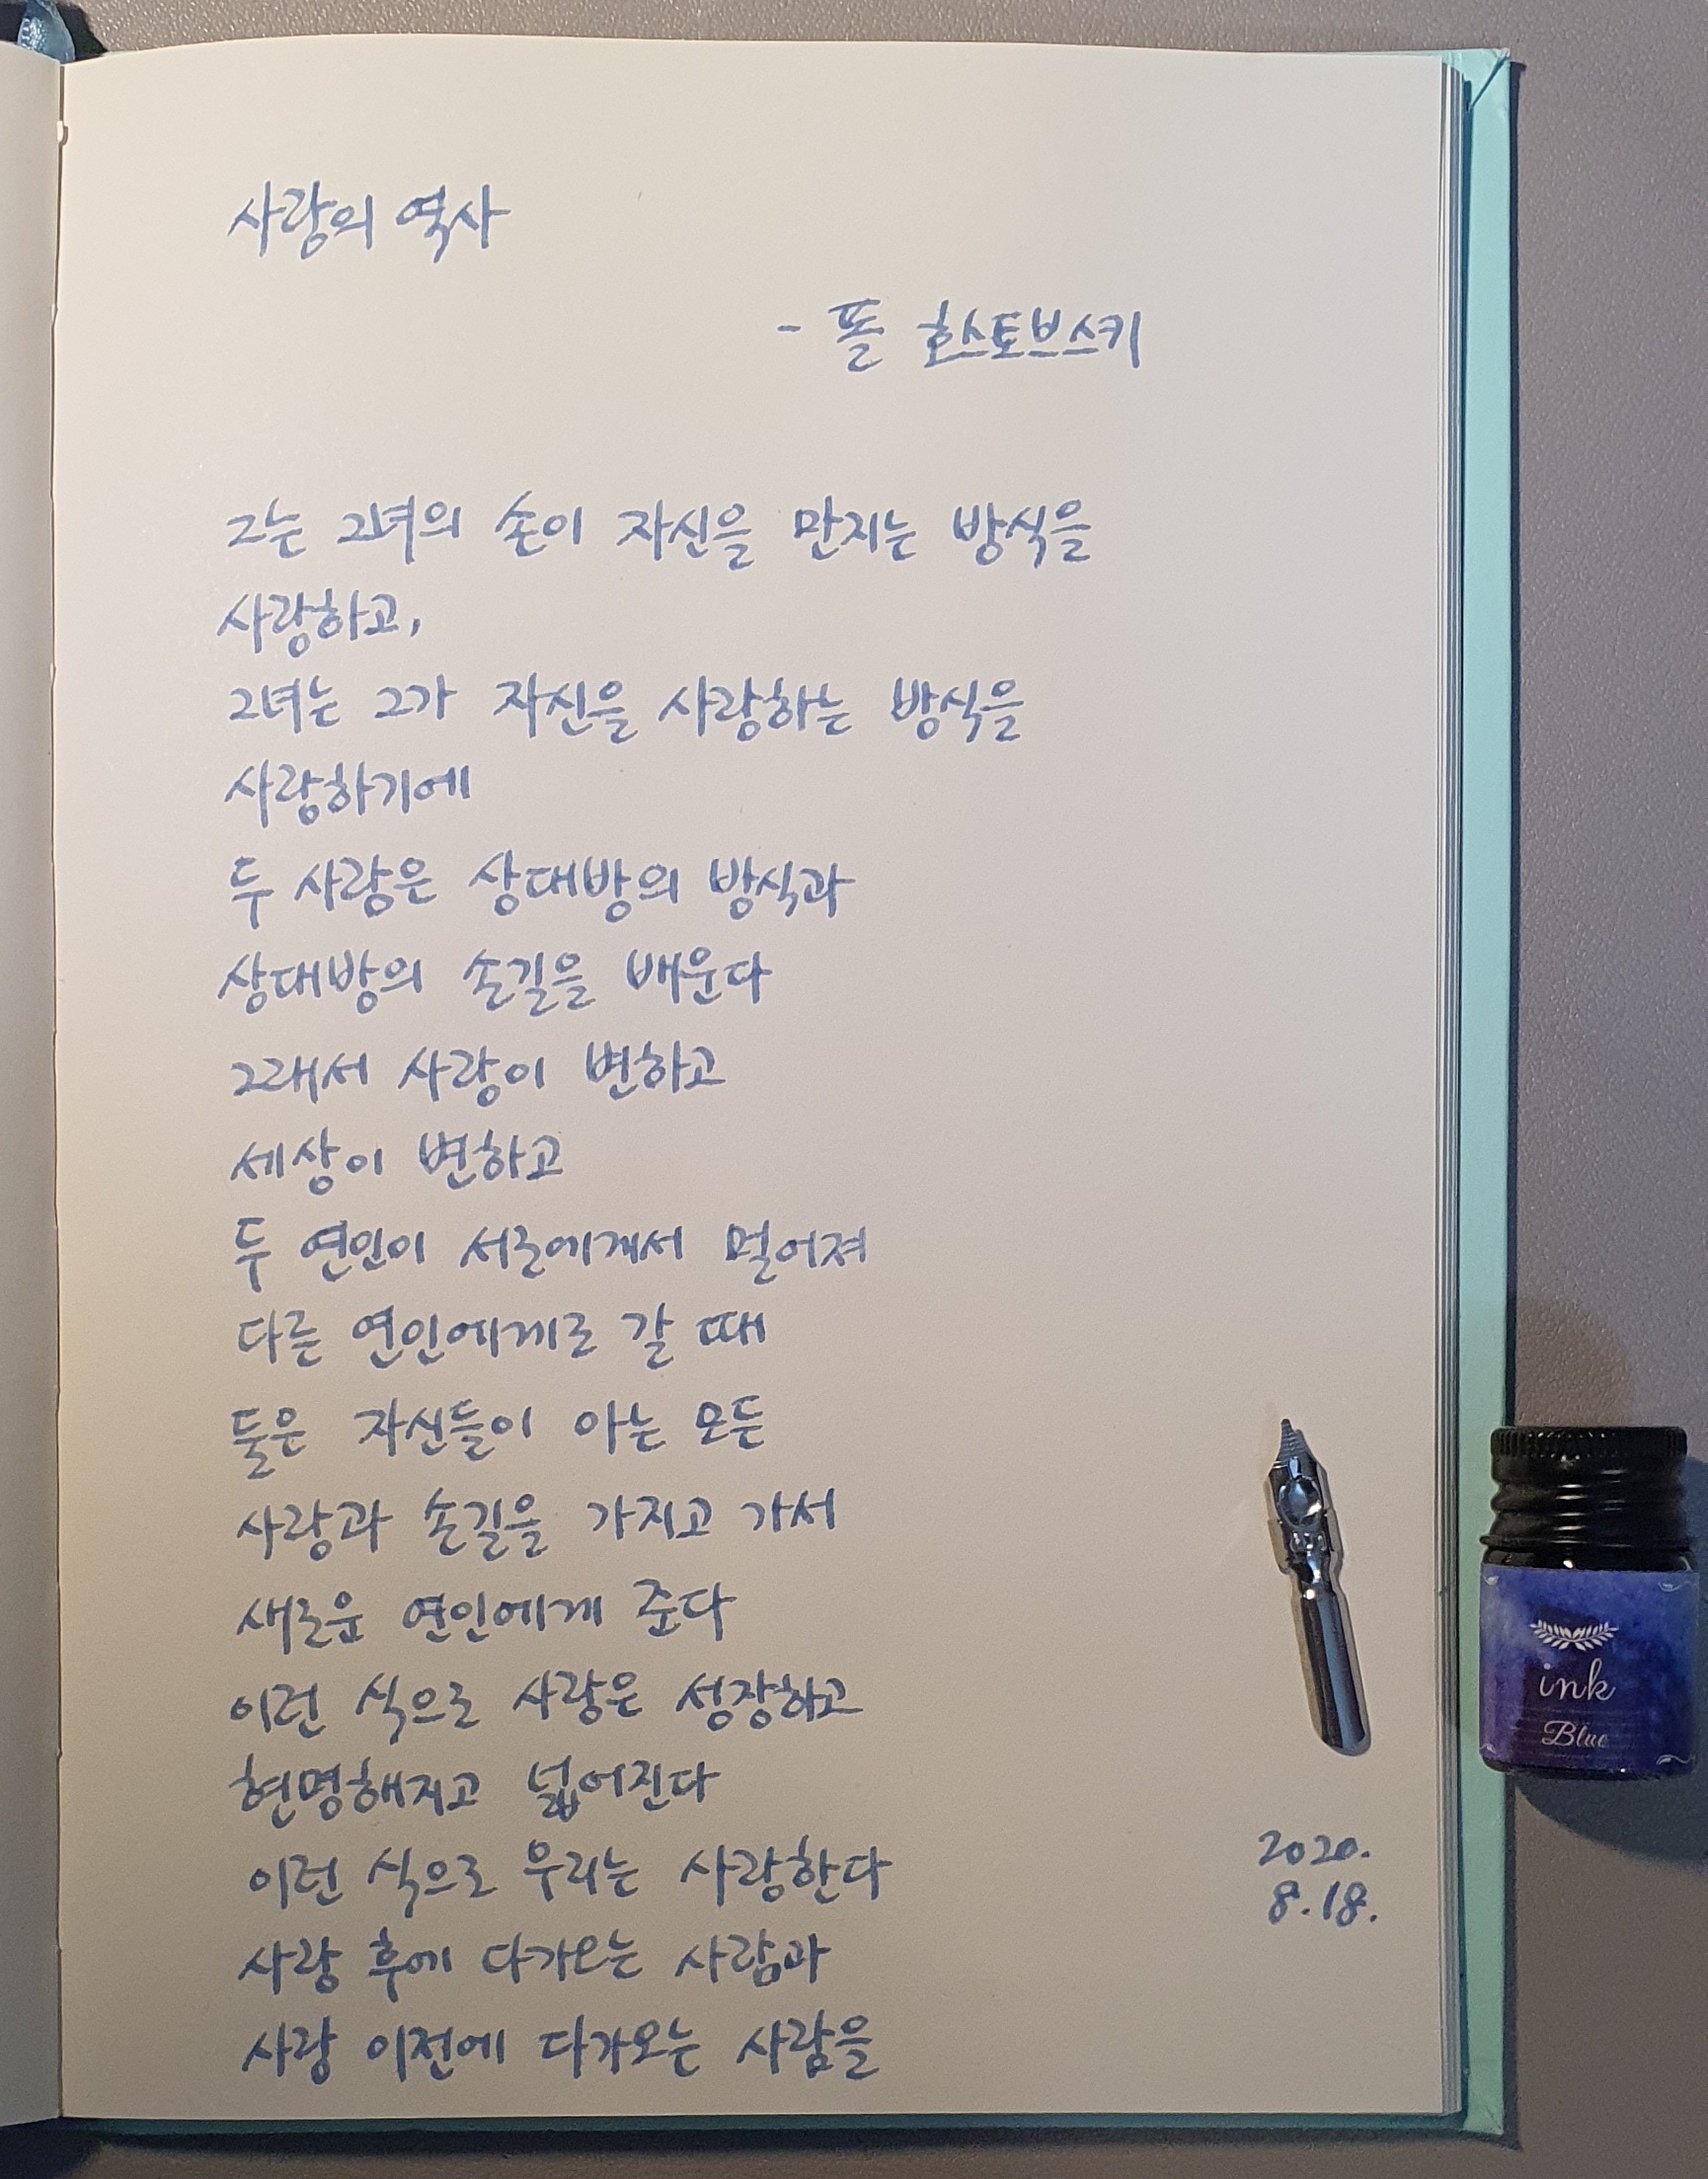 사랑의 역사
- 폴 흐스토브스키
그는 그녀의 손이 자신을 만지는 방식을
사랑하고,
그녀는 그가 자신을 사랑하는 방식을
사랑하기에
두 사람은 상대방의 방식과
상대방의 손길을 배운다
그래서 사랑이 변하고
세상이 변하고
두 연인이 서로에게서 멀어져
다른 연인에게로 갈 때
둘은 자신들이 아는 모든
사랑과 손길을 가지고 가서
새로운 연인에게 준다
이런 식으로 사랑은 성장하고
현명해지고 넓어진다
이런 식으로 우리는 사랑한다
사랑 후에 다가오는 사람과
사랑 이전에 다가오는 사람을
2020.
8.18.
ink
Blue